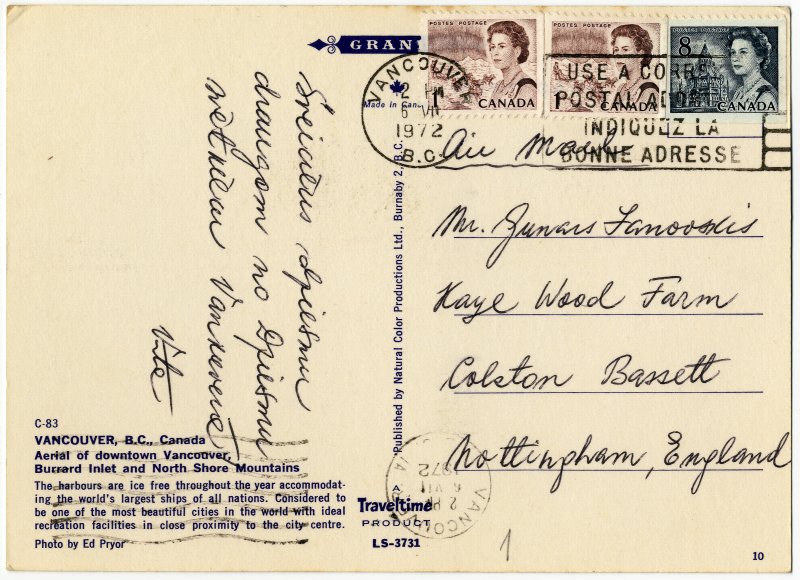 GRAN
Made in Can
VANCOUVER
2 PM
6 VII
1972
B.C.
POSTES POSTAGE
1
CANADA
POSTES POSTAGE
1
CANADA
8
CANADA
USE A CORRE
POSTAL ADD
INDIQUEZ LA
BONNE ADRESSE
Air Mail
Mr. Gunars Janovskis
Kaye Wood Farm
Colston Bassett
Nottingham, England
Sveicitus dziesmu
draugam no Dziesmu
Vite
Published by Natural Color Productions Ltd., Burnaby 2, B.C.
C-83
VANCOUVER, B.C., Canada
Aerial of downtown Vancouver,
Burrard Inlet and North Shore Mountains
The harbours are ice free throughout the year accommodat-
ing the world's largest ships of all nations. Considered to
be one of the most beautiful cities in the world with ideal
recreation facilities in close proximity to the city centre.
Photo by Ed Pryor
A
Traveltime
PRODUCT
LS-3731
VANCOUVER
2 PM
6 VII
1972
1
10